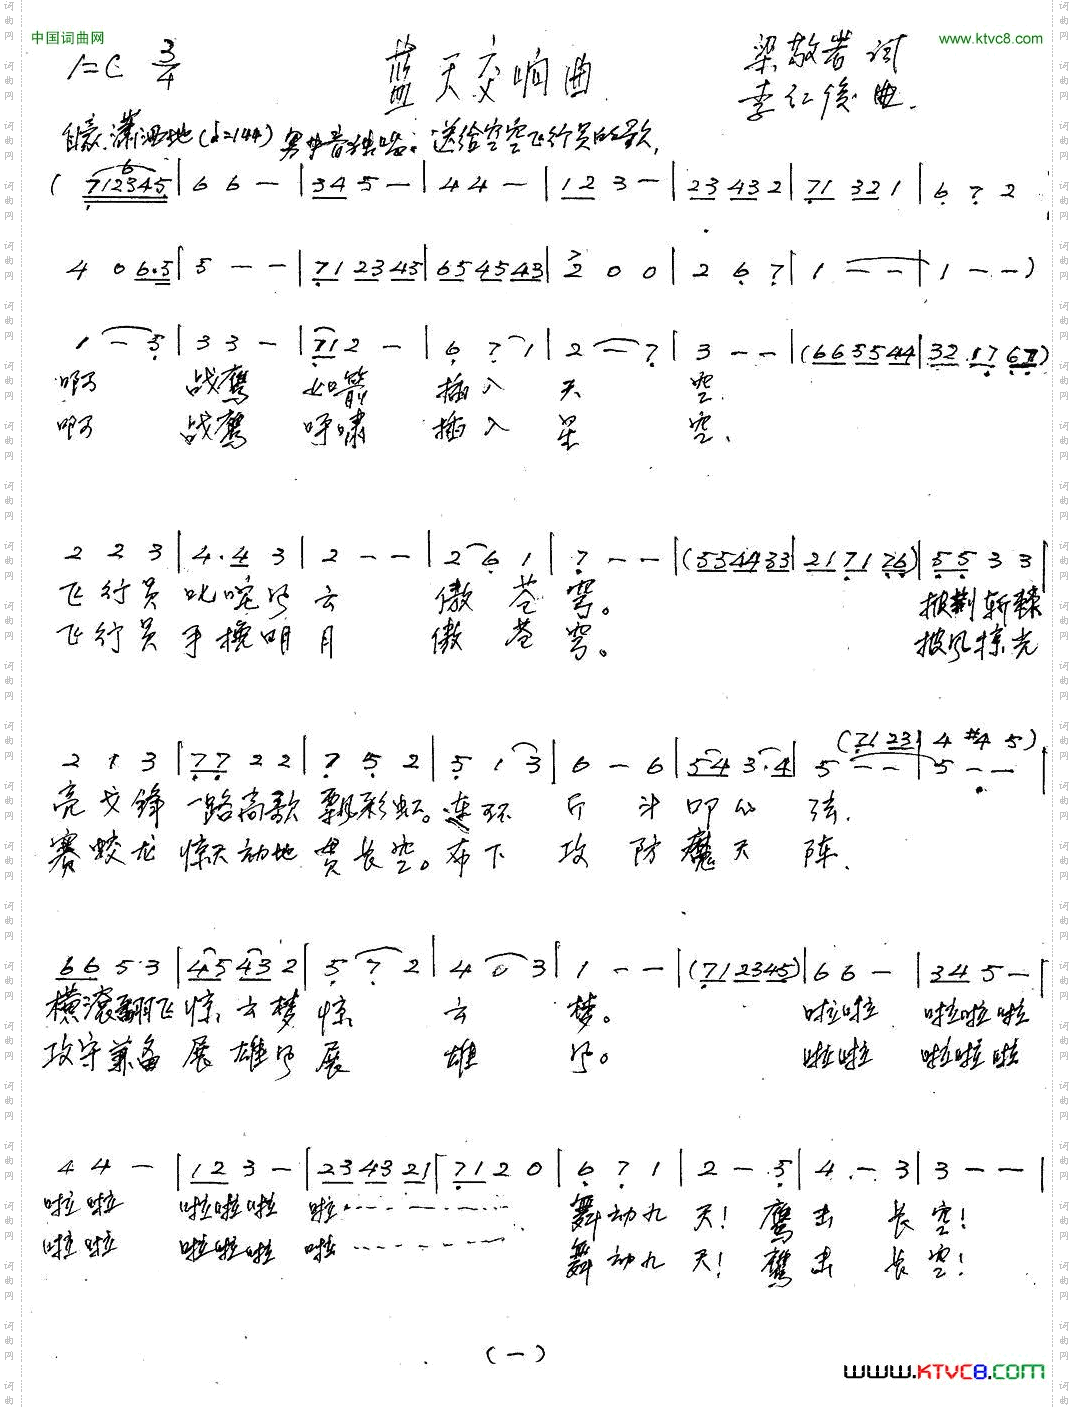 中国词曲网
www.ktvc8.com
1=C 3/4
蓝天交响曲
梁敬岩 词
李红俊 曲.
自豪.潇洒地(♩=144) 男中音独唱：送给空空飞行员的歌,
( 712345 | 6 6 — | 34 5 — | 4 4 — | 12 3 — | 23 43 2 | 71 32 1 | 6 7 2 |
4 0 6.5 | 5 — — | 71 23 45 | 65 45 43 | 2 0 0 | 2 6 7 | 1 — — | 1 — — )
1 — 5 | 3 3 — | 71 2 — | 6 7 1 | 2 — 7 | 3 — — | (66 55 44 | 32 17 67)
啊 战鹰 如箭 插入 天 空.
啊 战鹰 呼啸 插入 星 空.
2 2 3 | 4.4 3 | 2 — — | 2 6 1 | 7 — — | (55 44 33 | 21 71 76) | 55 3 3 |
飞行员 叱咤风云 傲苍穹。 披荆斩棘
飞行员 手挽明月 傲苍穹。 披风掠光
(71 23 | 4 #4 5)
2 1 3 | 77 2 2 | 7 5 2 | 5 1 3 | 6 — 6 | 54 3.4 | 5 — — | 5 — — |
亮戈锋 一路高歌 飘彩虹。连环 斤 斗 叩 弦.
赛蛟龙 惊天动地 贯长空。布下 攻 防 魔天 阵.
66 5 3 | 45 43 2 | 5 7 2 | 4 0 3 | 1 — — | (71 23 45) | 6 6 — | 34 5 — |
横滚翻飞 惊云梦 惊 云 梦。 啦啦 啦啦啦
攻守兼备 展雄风 展 雄 风。 啦啦 啦啦啦
4 4 — | 12 3 — | 23 43 21 | 71 2 0 | 6 7 1 | 2 — 5 | 4 — 3 | 3 — — |
啦啦 啦啦啦 啦…………… 舞动九天！鹰击 长空！
啦啦 啦啦啦 啦…………… 舞动九天！鹰击 长空！
(一)
www.KTVC8.com